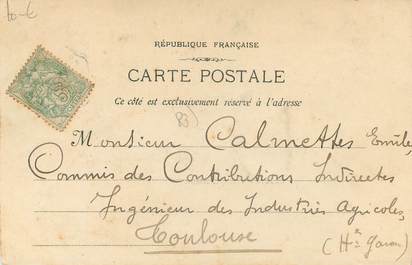 RÉPUBLIQUE FRANÇAISE
CARTE POSTALE
Ce côté est exclusivement réservé à l'adresse
Monsieur Calmettes Emile,
Commis des Contributions Indirectes
Ingénieur des Industries Agricoles,
Toulouse
(Hte Garonne)